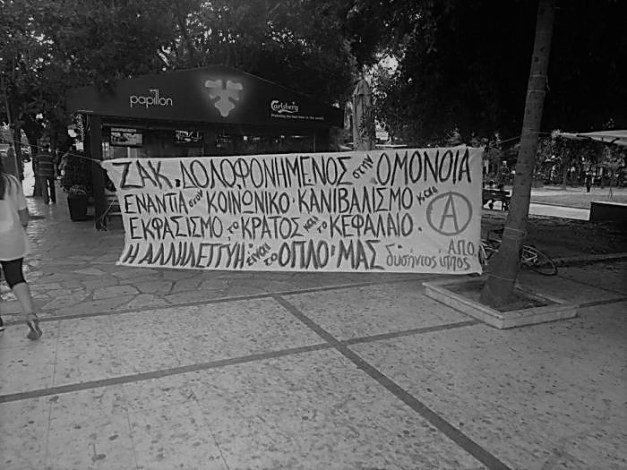 papillon
Carlsberg
ΖΑΚ, ΔΟΛΟΦΟΝΗΜΕΝΟΣ στην ΟΜΟΝΟΙΑ
ΕΝΑΝΤΙΑ στον ΚΟΙΝΩΝΙΚΟ·ΚΑΝΙΒΑΛΙΣΜΟ και
ΕΚΦΑΣΙΣΜΟ το ΚΡΑΤΟΣ και το ΚΕΦΑΛΑΙΟ.
Η ΑΛΛΙΛΕΓΓΥΗ είναι το ΟΠΛΟ·ΜΑΣ
Α
Α.Π.Ο.
δυσήνιος ίππος